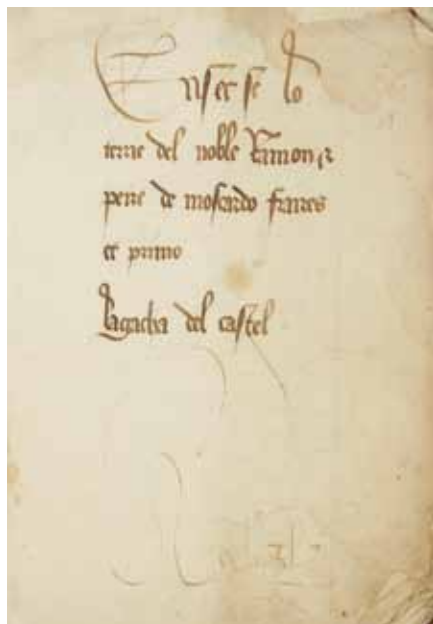 Ensec se lo
terrie del noble Ramon et
pere de moscardo frares
et primo
La gacha del castel